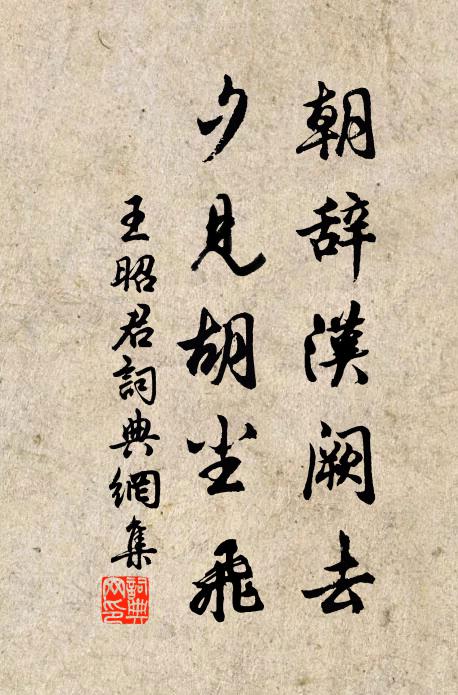 朝辞漢阙去
夕見胡尘飛
王昭君詞典網集
詞典网印